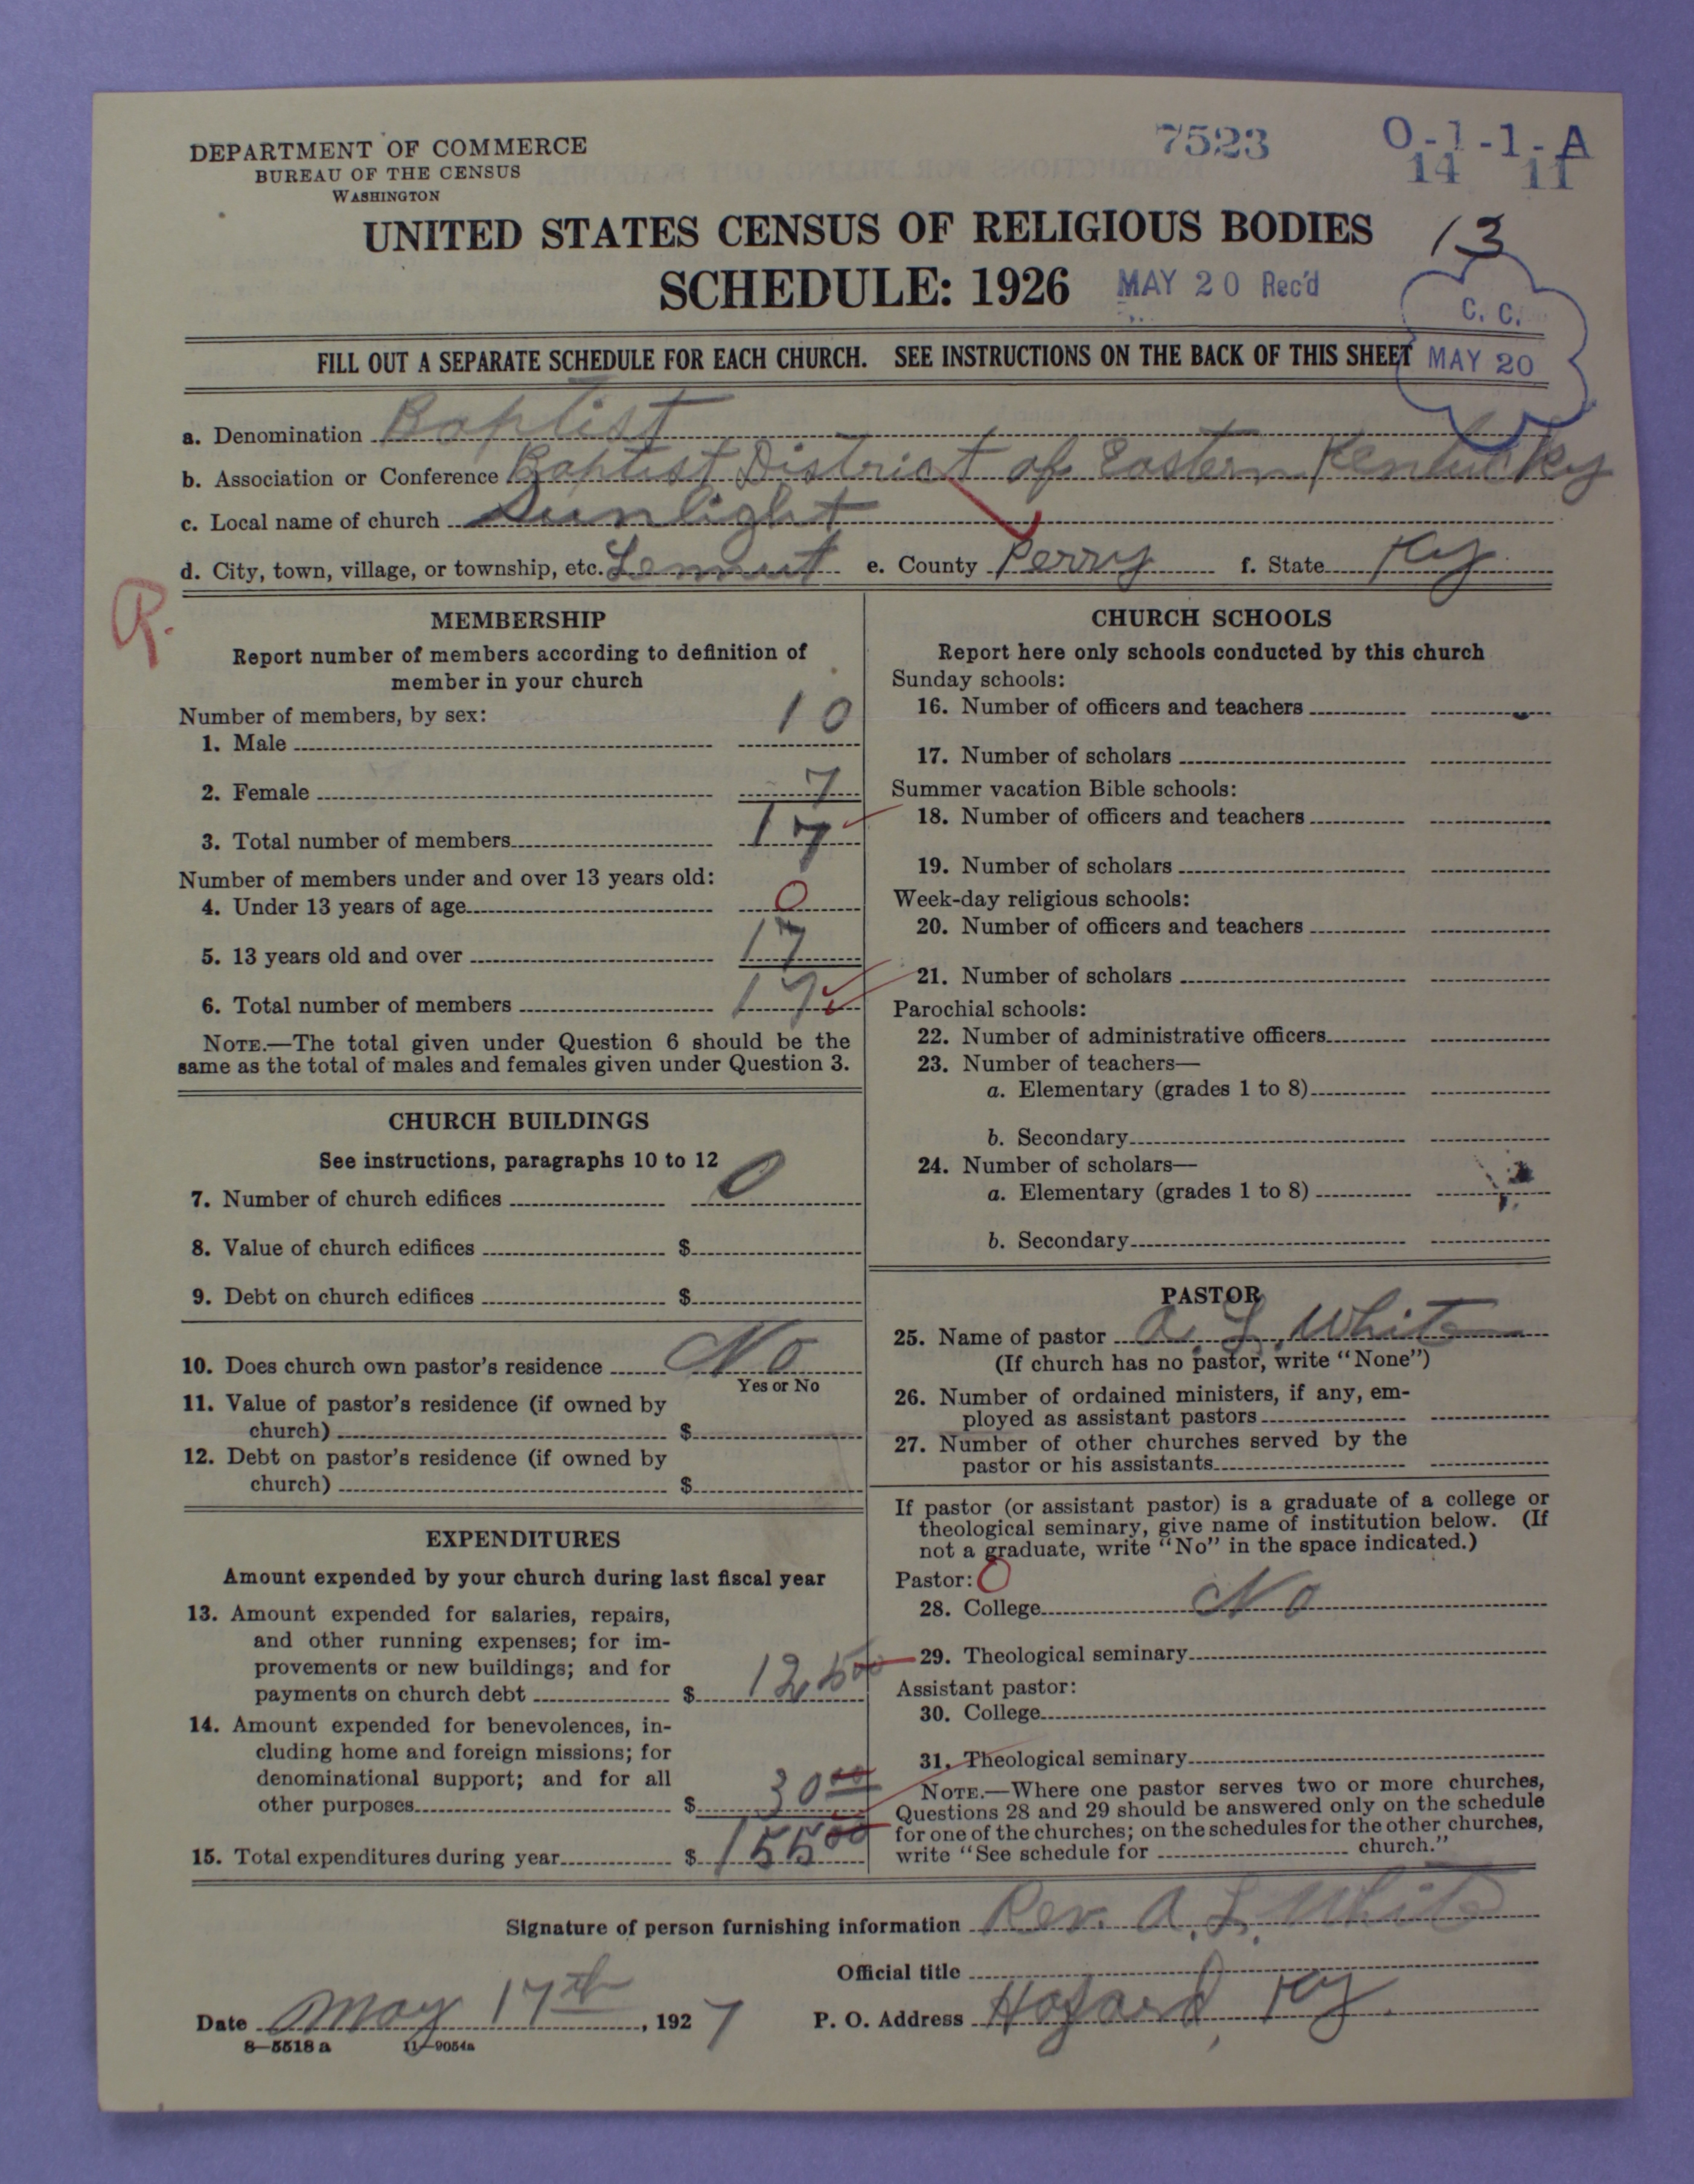 DEPARTMENT OF COMMERCE
BUREAU OF THE CENSUS
WASHINGTON
7523
O-1-1-A
14 11
UNITED STATES CENSUS OF RELIGIOUS BODIES
13
SCHEDULE: 1926
MAY 20 Rec'd
C. C.
MAY 20
FILL OUT A SEPARATE SCHEDULE FOR EACH CHURCH. SEE INSTRUCTIONS ON THE BACK OF THIS SHEET
a. Denomination Baptist
b. Association or Conference Baptist District of Eastern Kentucky
c. Local name of church Sunlight
d. City, town, village, or township, etc. e. County Perry f. State Ky
R.
MEMBERSHIP
Report number of members according to definition of
member in your church
Number of members, by sex:
1. Male 10
2. Female 7
3. Total number of members 17
Number of members under and over 13 years old:
4. Under 13 years of age 0
5. 13 years old and over 17
6. Total number of members 17
NOTE.—The total given under Question 6 should be the
same as the total of males and females given under Question 3.
CHURCH BUILDINGS
See instructions, paragraphs 10 to 12
7. Number of church edifices 0
8. Value of church edifices $
9. Debt on church edifices $
10. Does church own pastor's residence No
Yes or No
11. Value of pastor's residence (if owned by
church) $
12. Debt on pastor's residence (if owned by
church) $
EXPENDITURES
Amount expended by your church during last fiscal year
13. Amount expended for salaries, repairs,
and other running expenses; for im-
provements or new buildings; and for
payments on church debt $ 125 00
14. Amount expended for benevolences, in-
cluding home and foreign missions; for
denominational support; and for all
other purposes $ 30 00
15. Total expenditures during year $ 155 00
CHURCH SCHOOLS
Report here only schools conducted by this church
Sunday schools:
16. Number of officers and teachers
17. Number of scholars
Summer vacation Bible schools:
18. Number of officers and teachers
19. Number of scholars
Week-day religious schools:
20. Number of officers and teachers
21. Number of scholars
Parochial schools:
22. Number of administrative officers
23. Number of teachers—
a. Elementary (grades 1 to 8)
b. Secondary
24. Number of scholars—
a. Elementary (grades 1 to 8)
b. Secondary
PASTOR
25. Name of pastor A. L. White
(If church has no pastor, write "None")
26. Number of ordained ministers, if any, em-
ployed as assistant pastors
27. Number of other churches served by the
pastor or his assistants
If pastor (or assistant pastor) is a graduate of a college or
theological seminary, give name of institution below. (If
not a graduate, write "No" in the space indicated.)
Pastor: 0
28. College No
29. Theological seminary
Assistant pastor:
30. College
31. Theological seminary
NOTE.—Where one pastor serves two or more churches,
Questions 28 and 29 should be answered only on the schedule
for one of the churches; on the schedules for the other churches,
write "See schedule for church."
Signature of person furnishing information Rev. A. L. White
Official title
Date May 17th, 1927 P. O. Address Hazard, Ky.
8—5518 a 11—9054a